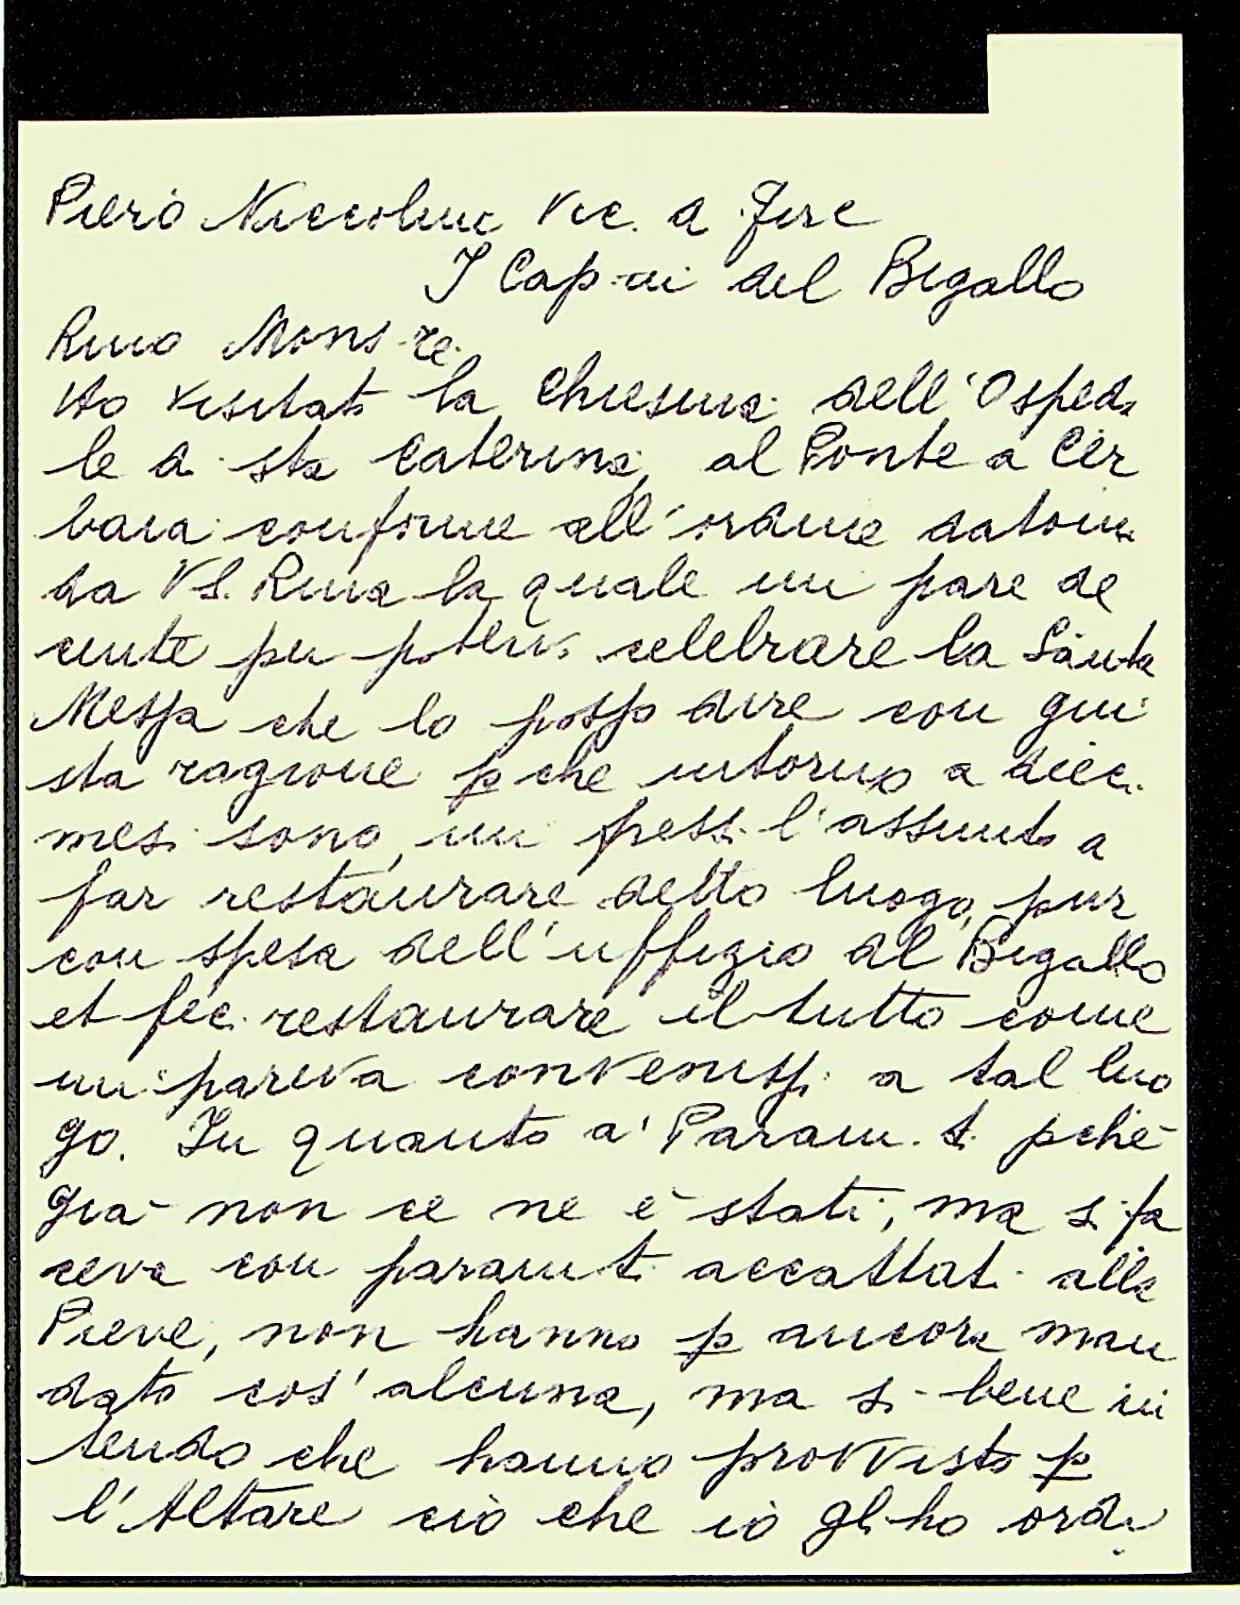 Piero Niccolini Vic. di Fire
I Cap-ni del Bigallo
Rmo Mons-re
Ho visitato la Chiesina dell'Ospeda
le di Sta Caterina, al Ponte a Cer
baia conforme all'ordine datomi
da VS. Rma la quale mi pare de
cente per potervi celebrare la Santa
Messa che lo posso dire con giu
sta ragione pche intorno a dieci
mesi sono, mi pressi l'assunto a
far restaurare detto luogo, pur
con spesa dell'uffizio del Bigallo
et feci restaurare il tutto come
mi pareva convenissi a tal luo
go. In quanto a' Param. ti pchè
già non ce ne è stati, ma si fa
ceva con paramti accattati alla
Pieve, non hanno p ancora man
dato cos'alcuna, ma si bene in
tendo che hanno provvisto p
l'Altare ciò che io gli ho ordi